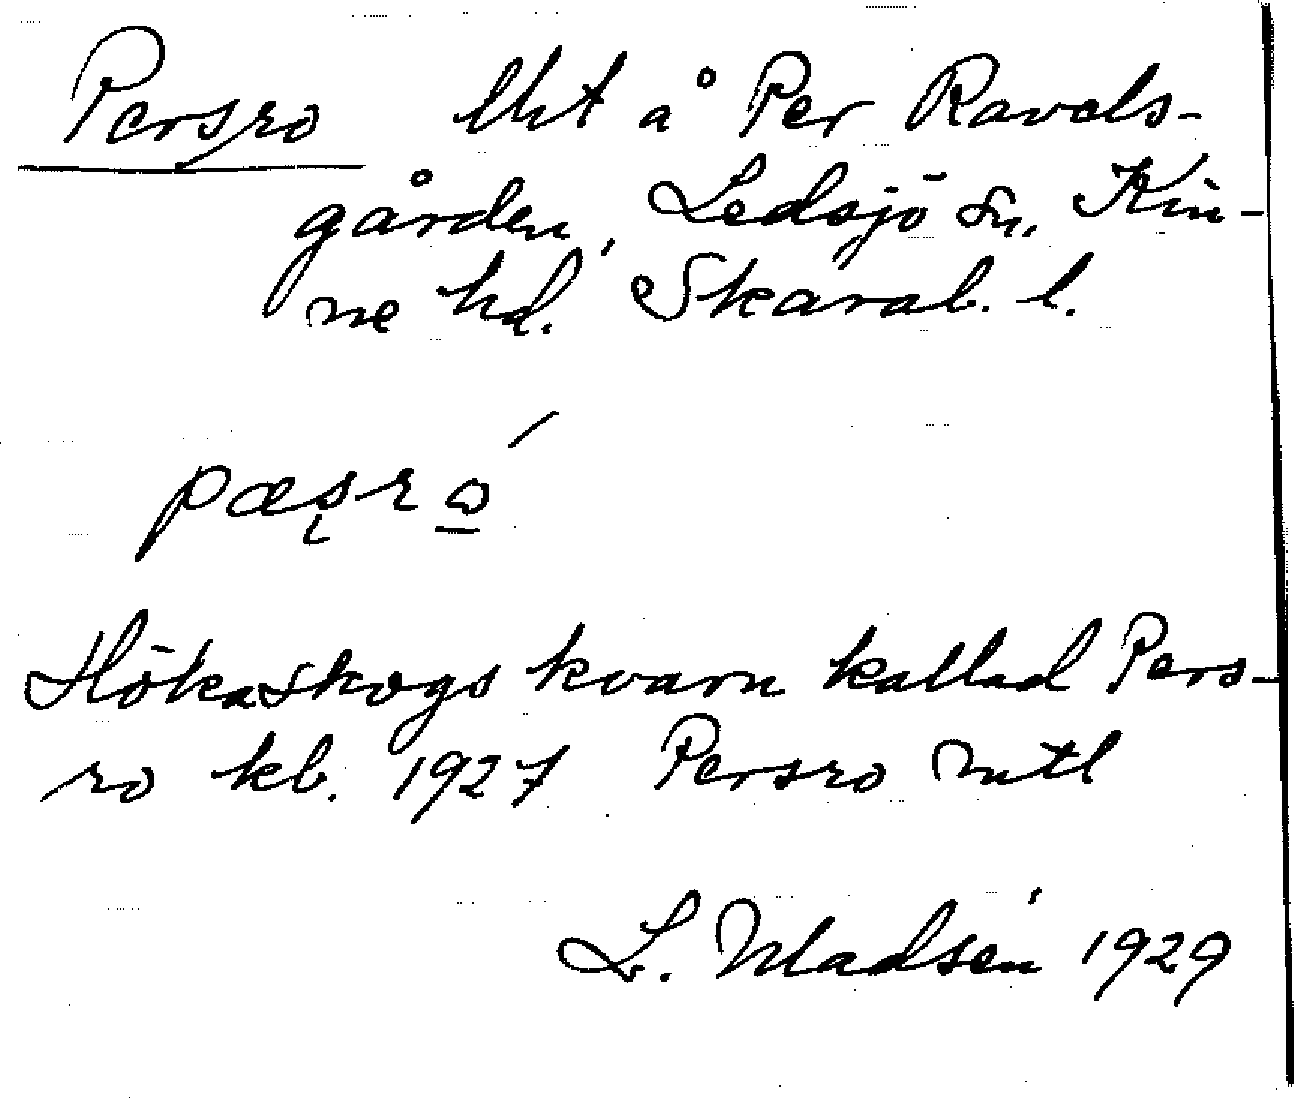 Persro lht å Per Ravels-
gården, Ledsjö sn, Kin-
ne hd. Skarab. l.
pæʂrώ̱
Hökaskogs kvarn kallad Pers-
ro kb. 1927 Persro mtl
L. Madsén 1929